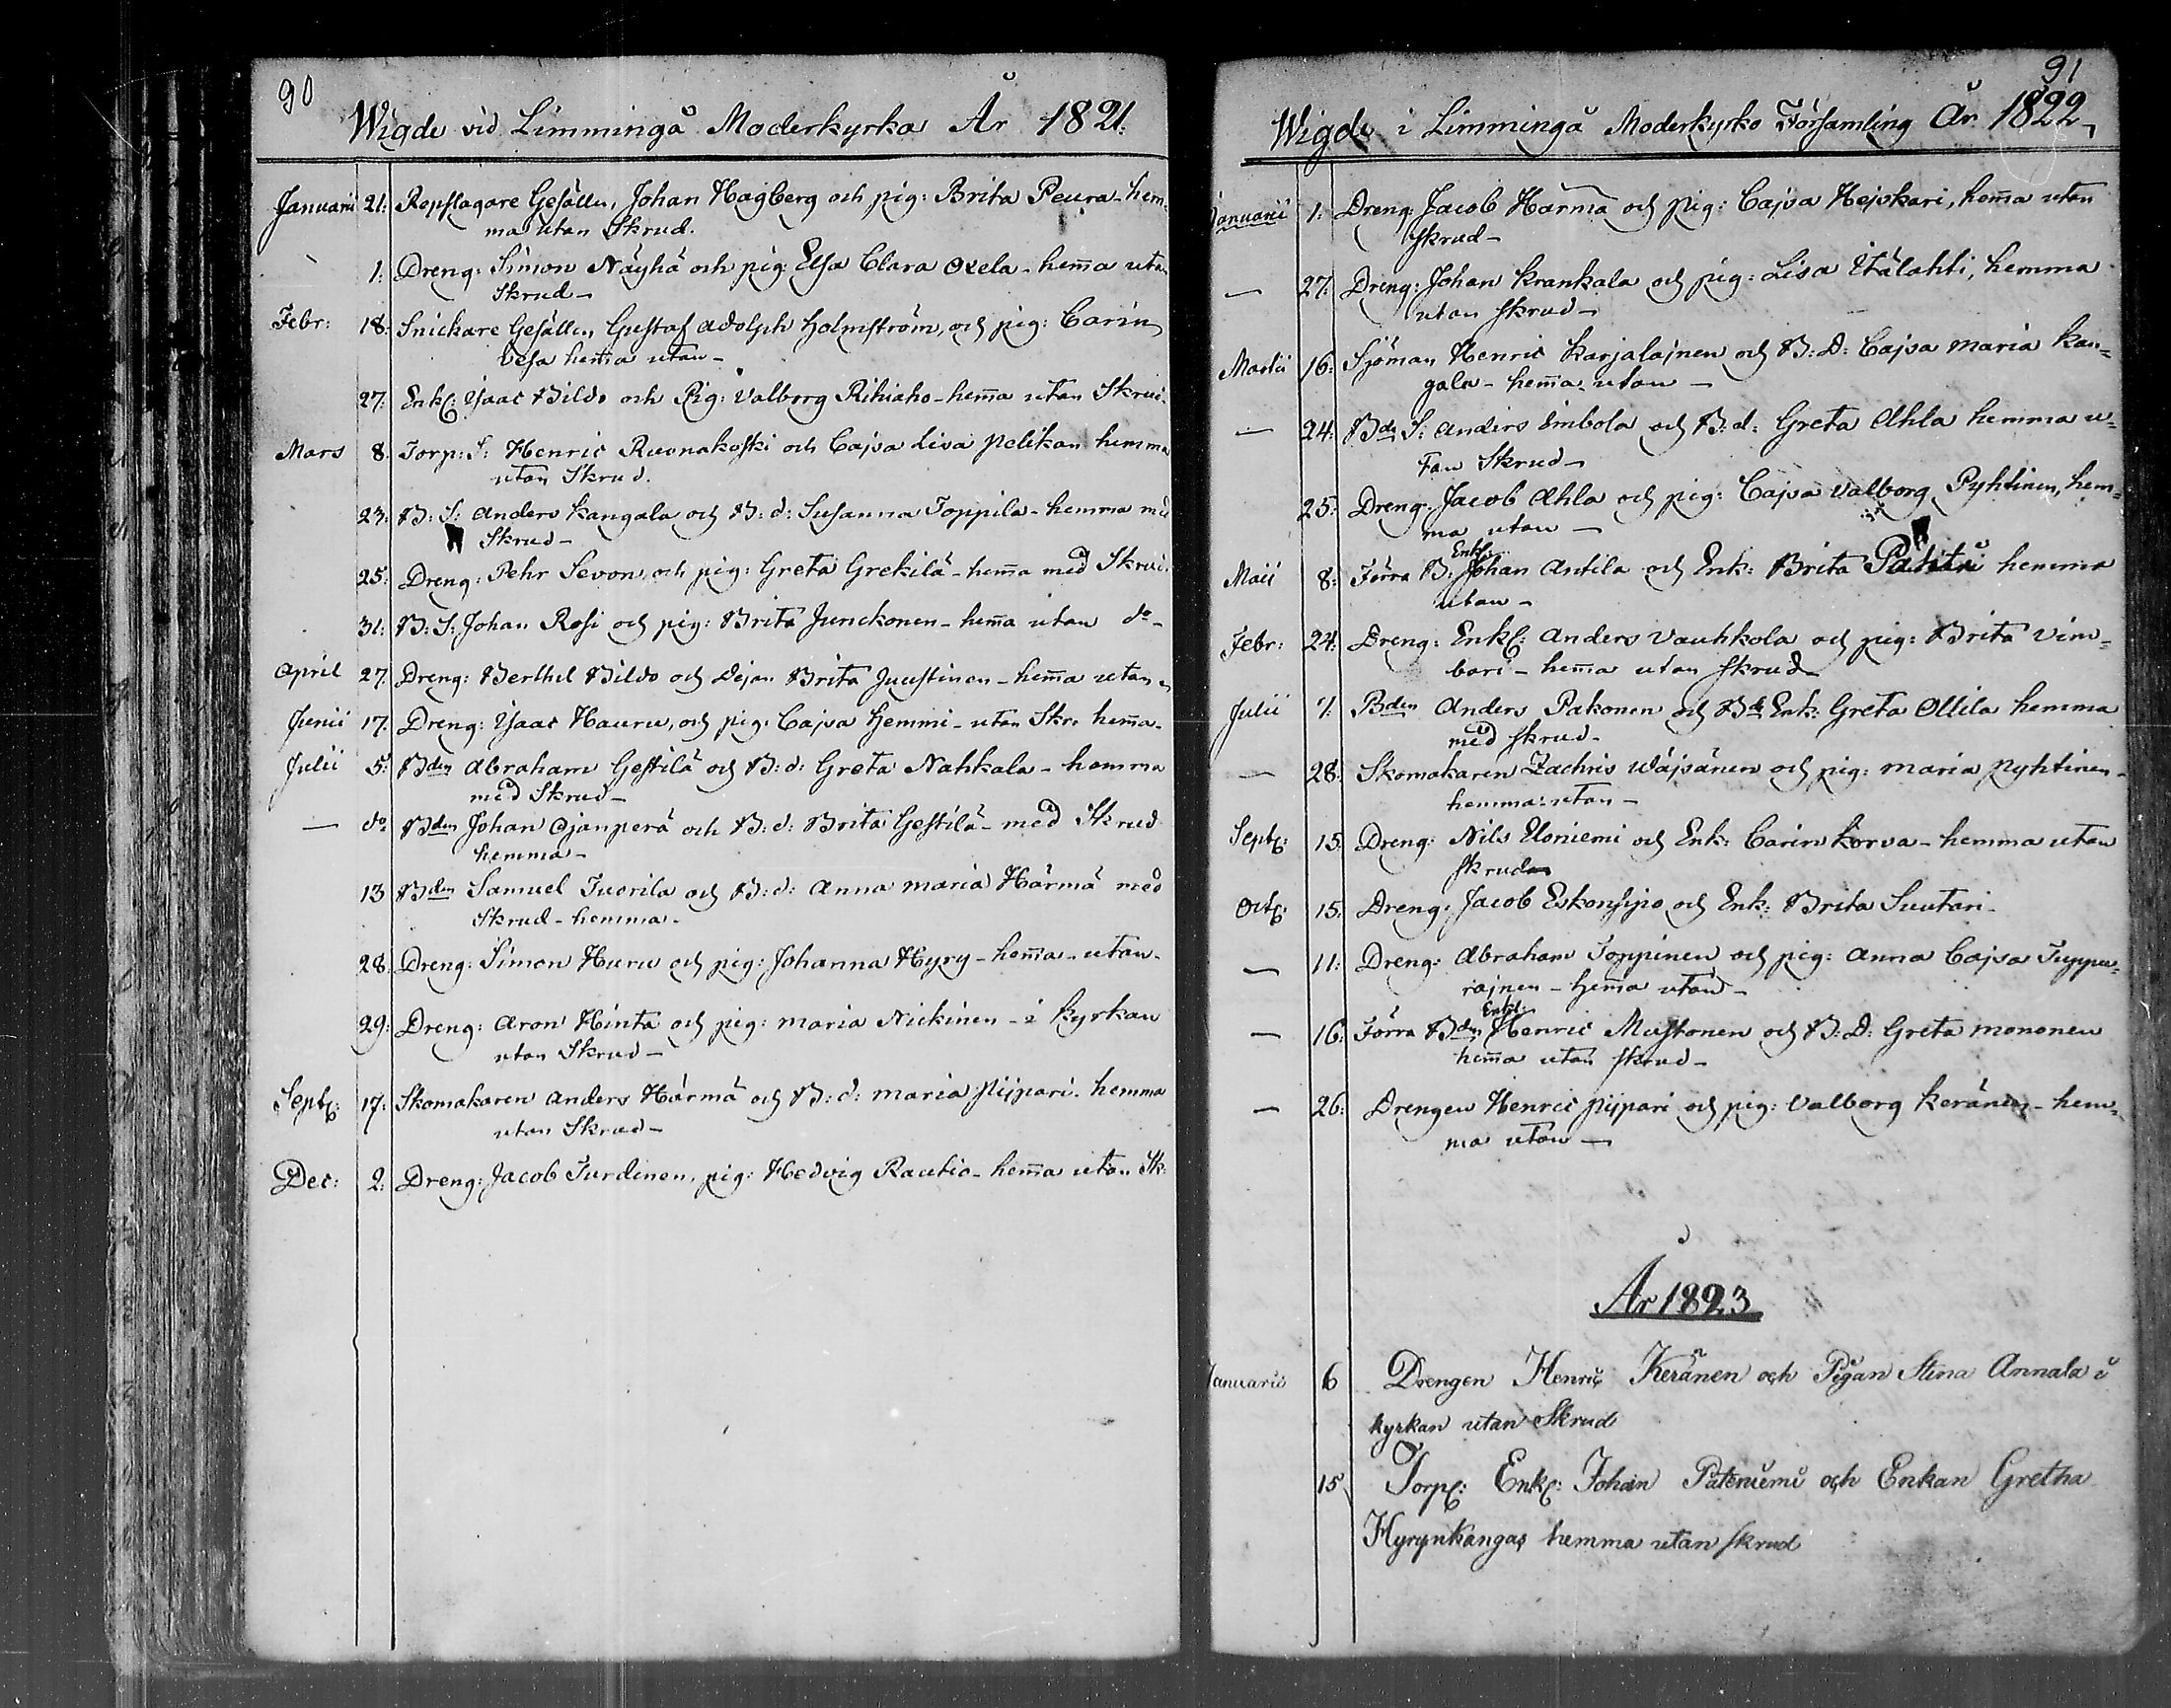 90
Wigde vid Limmingå Moderkyrka År 1821:
Januarii 21: Repslagare Gesällen, Johan Hagberg och pig: Brita Peura - hem-
ma utan Skrud.
1: Dreng: Simon Näyhä och pig: Elsa Clara Oxela - hem̄a utan
Skrud -
Febr: 18: Snickare Gesällen, Gustaf Adolph Holmström, och pig: Carin
Vesa hem̄a utan -
27: Enkl: Isaac Bildo och Pig: Valborg Rihiaho - hem̄a utan Skrud.
Mars 8: Torp: S: Henric Ruonakoski och Cajsa Lisa Pelikan hemma
utan Skrud.
23: B: S: Anders Kangala och B: d: Susanna Toppila - hemma med
Skrud -
25: Dreng: Pehr Sevon, och pig: Greta Grekilä - hem̄a med Skrud.
31: B: S: Johan Rosi och pig: Brita Junckonen - hem̄a utan do -
April 27: Dreng: Berthel Bildo och Dejan Brita Juustinen - hem̄a utan
Junii 17: Dreng: Isaac Hauru, och pig: Cajsa Hemmi - utan Skr: hem̄a -
Julii 5: Bden Abraham Gestilä och B: d: Greta Nahkala - hemma
med Skrud -
— do Bden Johan Ojanperä och B: d: Brita Gestilä - med Skrud
hemma -
13 Bden Samuel Tuorila och B: d: Anna Maria Härmä med
Skrud - hemma -
28: Dreng: Simon Huru och pig: Johanna Hyry - hem̄a - utan -
29: Dreng: Aron Hinta och pig: Maria Nickinen - i kyrkan
utan Skrud -
Septr: 17: Skomakaren Anders Härmä och B: d: Maria Pijpari - hemma
utan Skrud -
Dec: 2: Dreng: Jacob Turdinen, pig: Hedvig Rautio - hem̄a utan Sk:
91
Wigde i Limmingå Moderkyrko Församling År 1822
Januarii 1: Dreng: Jacob Härmä och pig: Cajsa Hejskari, hem̄a utan
Skrud -
— 27: Dreng: Johan Krankala och pig: Lisa Itälahti, hemma
utan Skrud -
Martii 16: Sjöman Henric Karjalajnen och B: D: Cajsa Maria Kan=
gala - hem̄a utan -
— 24: Bde S: Anders Simbola och B: d: Greta Ahla hemma u=
tan Skrud -
25: Dreng: Jacob Ahla och pig: Cajsa Valborg Pyhtinen, hem=
ma utan -
Enkl:
Maii 8: Förra B: Johan Antila och Enk: Brita hemma
utan -
Febr: 24: Dreng: Enkl: Anders Vauhkola och pig: Brita Vim=
bari - hem̄a utan Skrud
Julii 7: Bden Anders Pakonen och Bde Enk: Greta Ollila hemma
med Skrud -
— 28: Skomakaren Zachris Wäjsänen och pig: Maria Pyhtinen -
hemma utan -
Septr: 15: Dreng: Nils Eloniemi och Enk: Carin Korva - hemma utan
Skrud
Octr: 15: Dreng: Jacob Eskonsipo och Enk: Brita Suutari -
— 11: Dreng: Abraham Toppinen och pig: Anna Cajsa Tuppu=
rajnen - hem̄a utan -
Enkl:
— 16: Förra Bden Henric Mustonen och B: D: Greta Mononen
hem̄a utan Skrud -
— 26: Drengen Henric Pijpari och pig: Valborg Keränen - hem=
ma utan -
År 1823
Januarii 6 Drengen Henric Keränen och Pigan Stina Annala i
kyrkan utan Skrud
15 Torp: Enkl: Johan Pateniemi och Enkan Gretha
Hyrynkangas hemma utan skrud